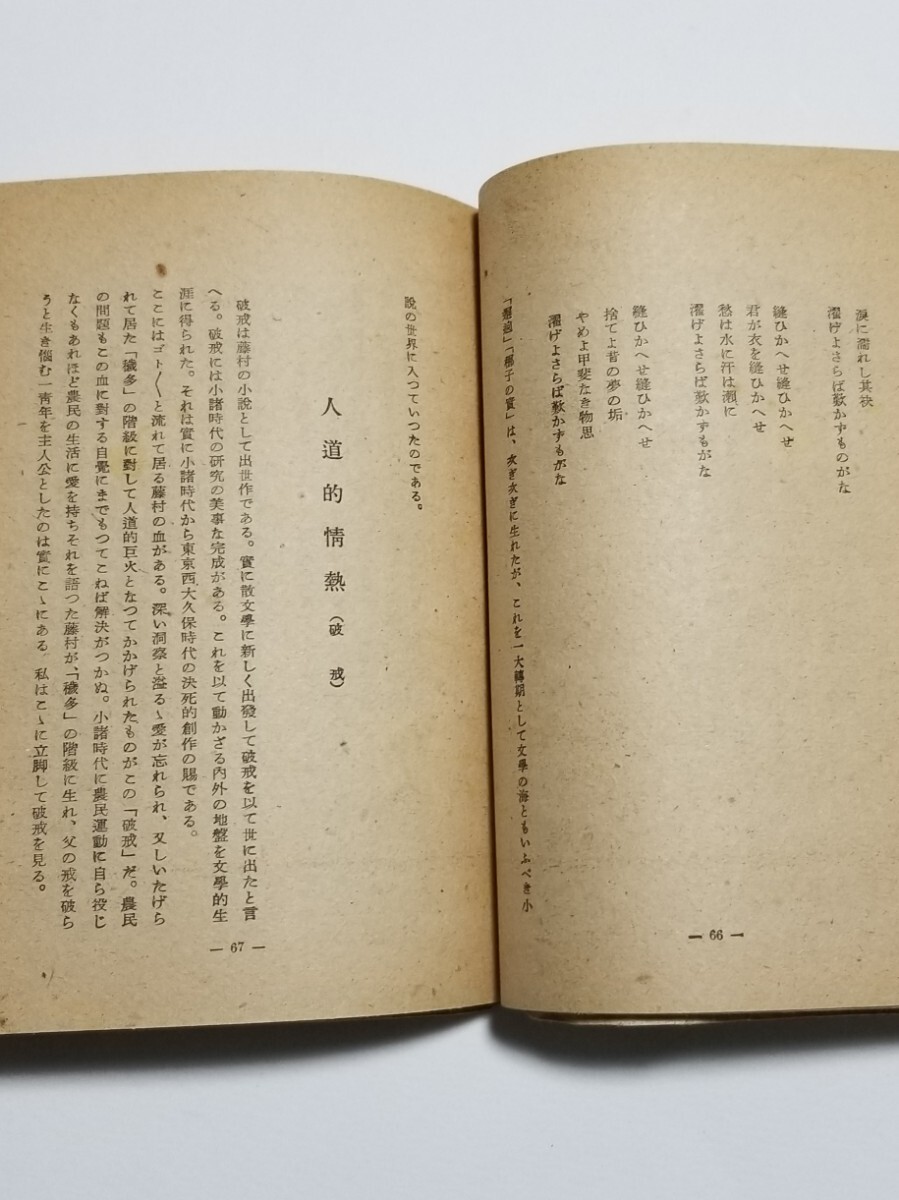 涙に濡れし其袂
濯げよさらば歎かずものがな
縫ひかへせ縫ひかへせ
君が衣を縫ひかへせ
愁は水に汗は瀬に
濯げよさらば歎かずもがな
縫ひかへせ縫ひかへせ
捨てよ昔の夢の垢
やめよ甲斐なき物思
濯げよさらば歎かずもがな
「邂逅」「椰子の實」は、次ぎ次ぎに生れたが、これを一大轉期として文學の海ともいふべき小
— 66 —
説の世界に入つていつたのである。
人道的情熱（破戒）
破戒は藤村の小説として出世作である。實に散文學に新しく出發して破戒を以て世に出たと言
へる。破戒には小諸時代の研究の美事な完成がある。これを以て動かざる内外の地盤を文學的生
涯に得られた。それは實に小諸時代から東京西大久保時代の決死的創作の賜である。
ここにはゴト〱と流れて居る藤村の血がある。深い洞察と溢るゝ愛が忘れられ、又しいたげら
れて居た「穢多」の階級に對して人道的巨火となつてかかげられたものがこの「破戒」だ。農民
の問題もこの血に對する自覺にまでもつてこねば解決がつかぬ。小諸時代に農民運動に自ら投じ
なくもあれほど農民の生活に愛を持ちそれを語つた藤村が、「穢多」の階級に生れ、父の戒を破ら
うと生き悩む一靑年を主人公としたのは實にこゝにある 私はこゝに立脚して破戒を見る。
— 67 —